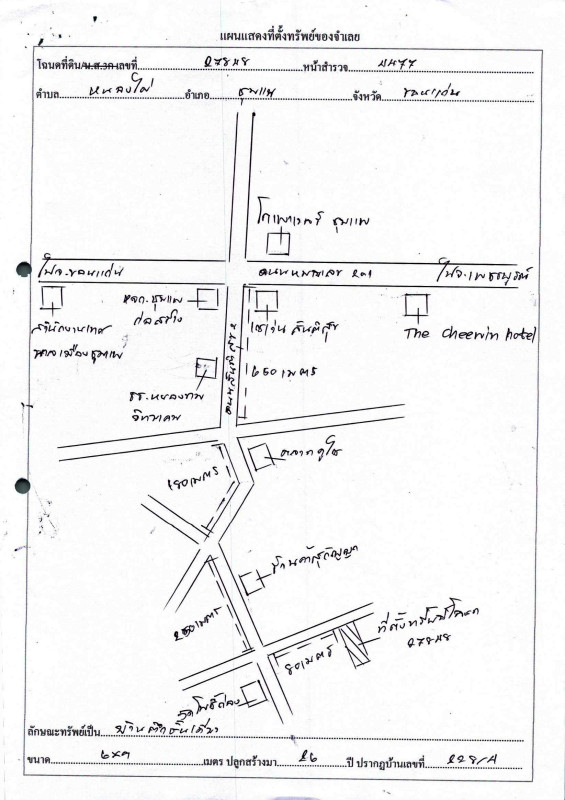 แผนแสดงที่ตั้งทรัพย์ของจำเลย
โฉนดที่ดิน/น.ส.3ก เลขที่ 27848 หน้าสำรวจ
ตำบล หนองไผ่ อำเภอ ชุมแพ จังหวัด ขอนแก่น
ชุมแพ
ไป จ.ขอนแก่น
ถนนหมายเลข 201
ไป จ.เพชรบูรณ์
สำนักงานเทศบาลเมืองชุมแพ
หจก.ชุมแพ
ก่อสร้าง
เซเว่น สันติสุข
The Cheewin hotel
ถนนสันติสุข 2
650 เมตร
รร.หนองไผ่
วิทยาคม
ตลาด
180 เมตร
ร้าน
250 เมตร
80 เมตร
ที่ตั้งทรัพย์โฉนด
27848
ลักษณะทรัพย์เป็น บ้านตึกชั้นเดียว
ขนาด 6x9 เมตร ปลูกสร้างมา 26 ปี ปรากฏบ้านเลขที่ 228/4